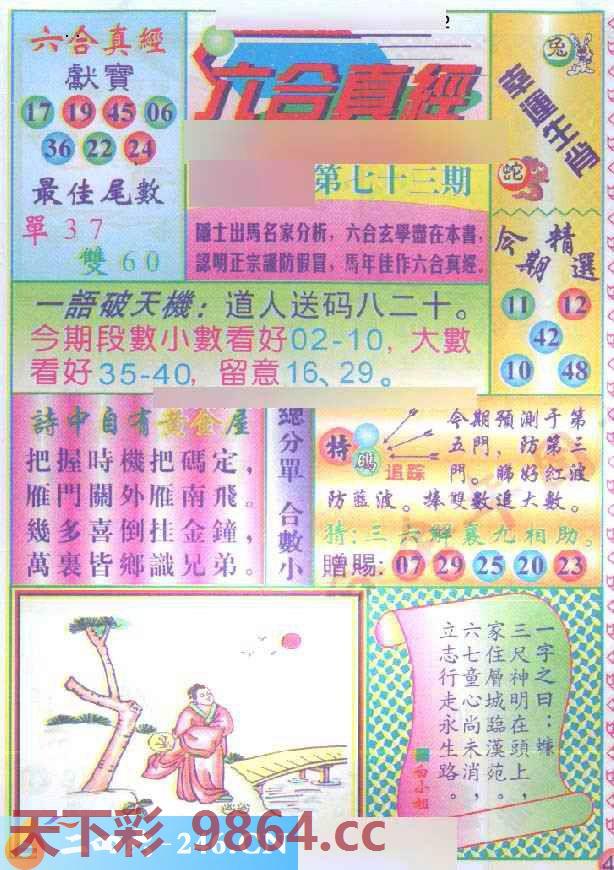 六合真經
獻寶
17 19 45 06
36 22 24
最佳尾數
單37
雙60
六合真經
第七十三期
隱士出馬名家分析，六合玄學盡在本書，
認明正宗謹防假冒，馬年佳作六合真經。
兔
蛇
今期精選
11 12
42
10 48
一語破天機：道人送码八二十。
今期段數小數看好02-10，大數
看好35-40，留意16、29。
詩中自有黃金屋
把握時機把碼定，
雁門關外雁南飛。
幾多喜倒挂金鐘，
萬裏皆鄉識兄弟。
總分單 合數小
特碼追踪
今期預測于第
五門，防第三
門。睇好紅波
防藍波。捧雙數追大數。
猜:三六解裏九相助。
贈賜:07 29 25 20 23
一字之曰：
三尺神明在頭上，
家住層城臨漢苑。
六七童心尚未消，
立志行走永生路。
白小姐
天下彩 9864.cc
246.CN